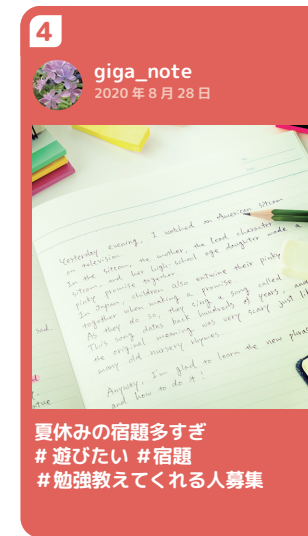 4
giga_note
2020年8月28日
Yesterday evening, I watched an American sitcom
on television.
In the sitcom, the mother, the lead character
and her high school age daughter made a
pinky promise together.
In Japan, children also entwine their pinky
together when making a promise.
As they do so, they sing a song called
This song dates back hundreds of years, and
the original meaning was very scary just li
many old nursery rhymes.
Anyway, I'm glad to learn the new phras
and how to do it!
夏休みの宿題多すぎ
#遊びたい #宿題
#勉強教えてくれる人募集